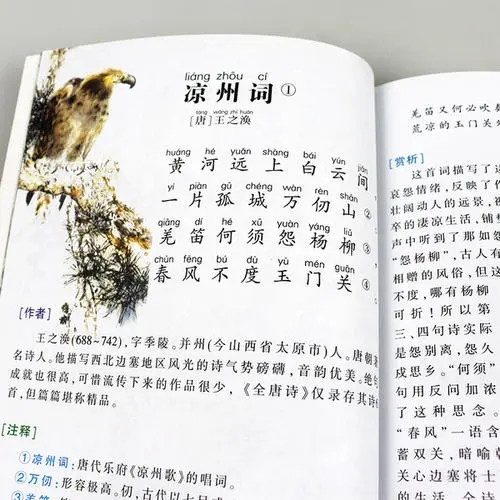 liáng zhōu cí
凉州词①
táng wáng zhī huàn
[唐]王之涣
huáng hé yuǎn shàng bái yún jiān
黄河远上白云间
yí piàn gū chéng wàn rèn shān
一片孤城万仞山②
qiāng dí hé xū yuàn yáng liǔ
羌笛何须怨杨柳③
chūn fēng bú dù yù mén guān
春风不度玉门关④
[作者]
王之涣(688~742),字季陵。并州(今山西省太原市)人。唐朝
名诗人。他描写西北边塞地区风光的诗气势磅礴,音韵优美。绝
成就也很高,可惜流传下来的作品很少,《全唐诗》仅录存其诗
首,但篇篇堪称精品。
[注释]
①凉州词:唐代乐府《凉州歌》的唱词。
②万仞:形容极高。仞,古代以七尺
羌笛又何必吹
荒凉的玉门关
[赏析]
这首词描写了这
哀怨情绪,反映了作
壮阔动人的远景,
卒的凄凉生活,铺
声中听到了那如怨
“怨杨柳”,古人有
相赠的风俗,但这
不度,哪有杨柳
可折!所以第
三、四句诗实
是怨别离,怨久
戍思乡。“何须”
句用反问加浓
了这种思念。
“春风”一语含
蓄双关,暗喻
关心边塞将士
的生活。全诗